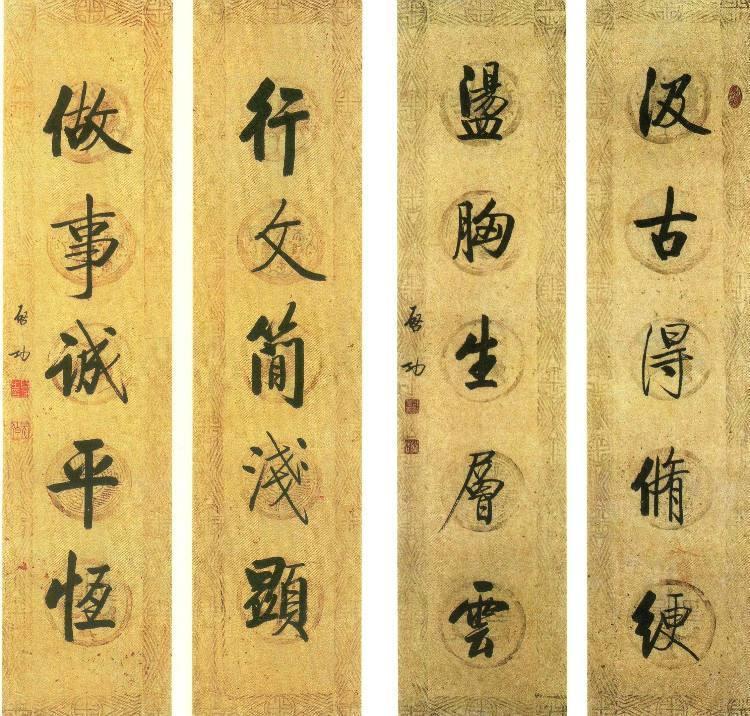 汲古得脩綆
盪胸生層雲
啓功
行文簡淺顯
做事誠平恆
啓功